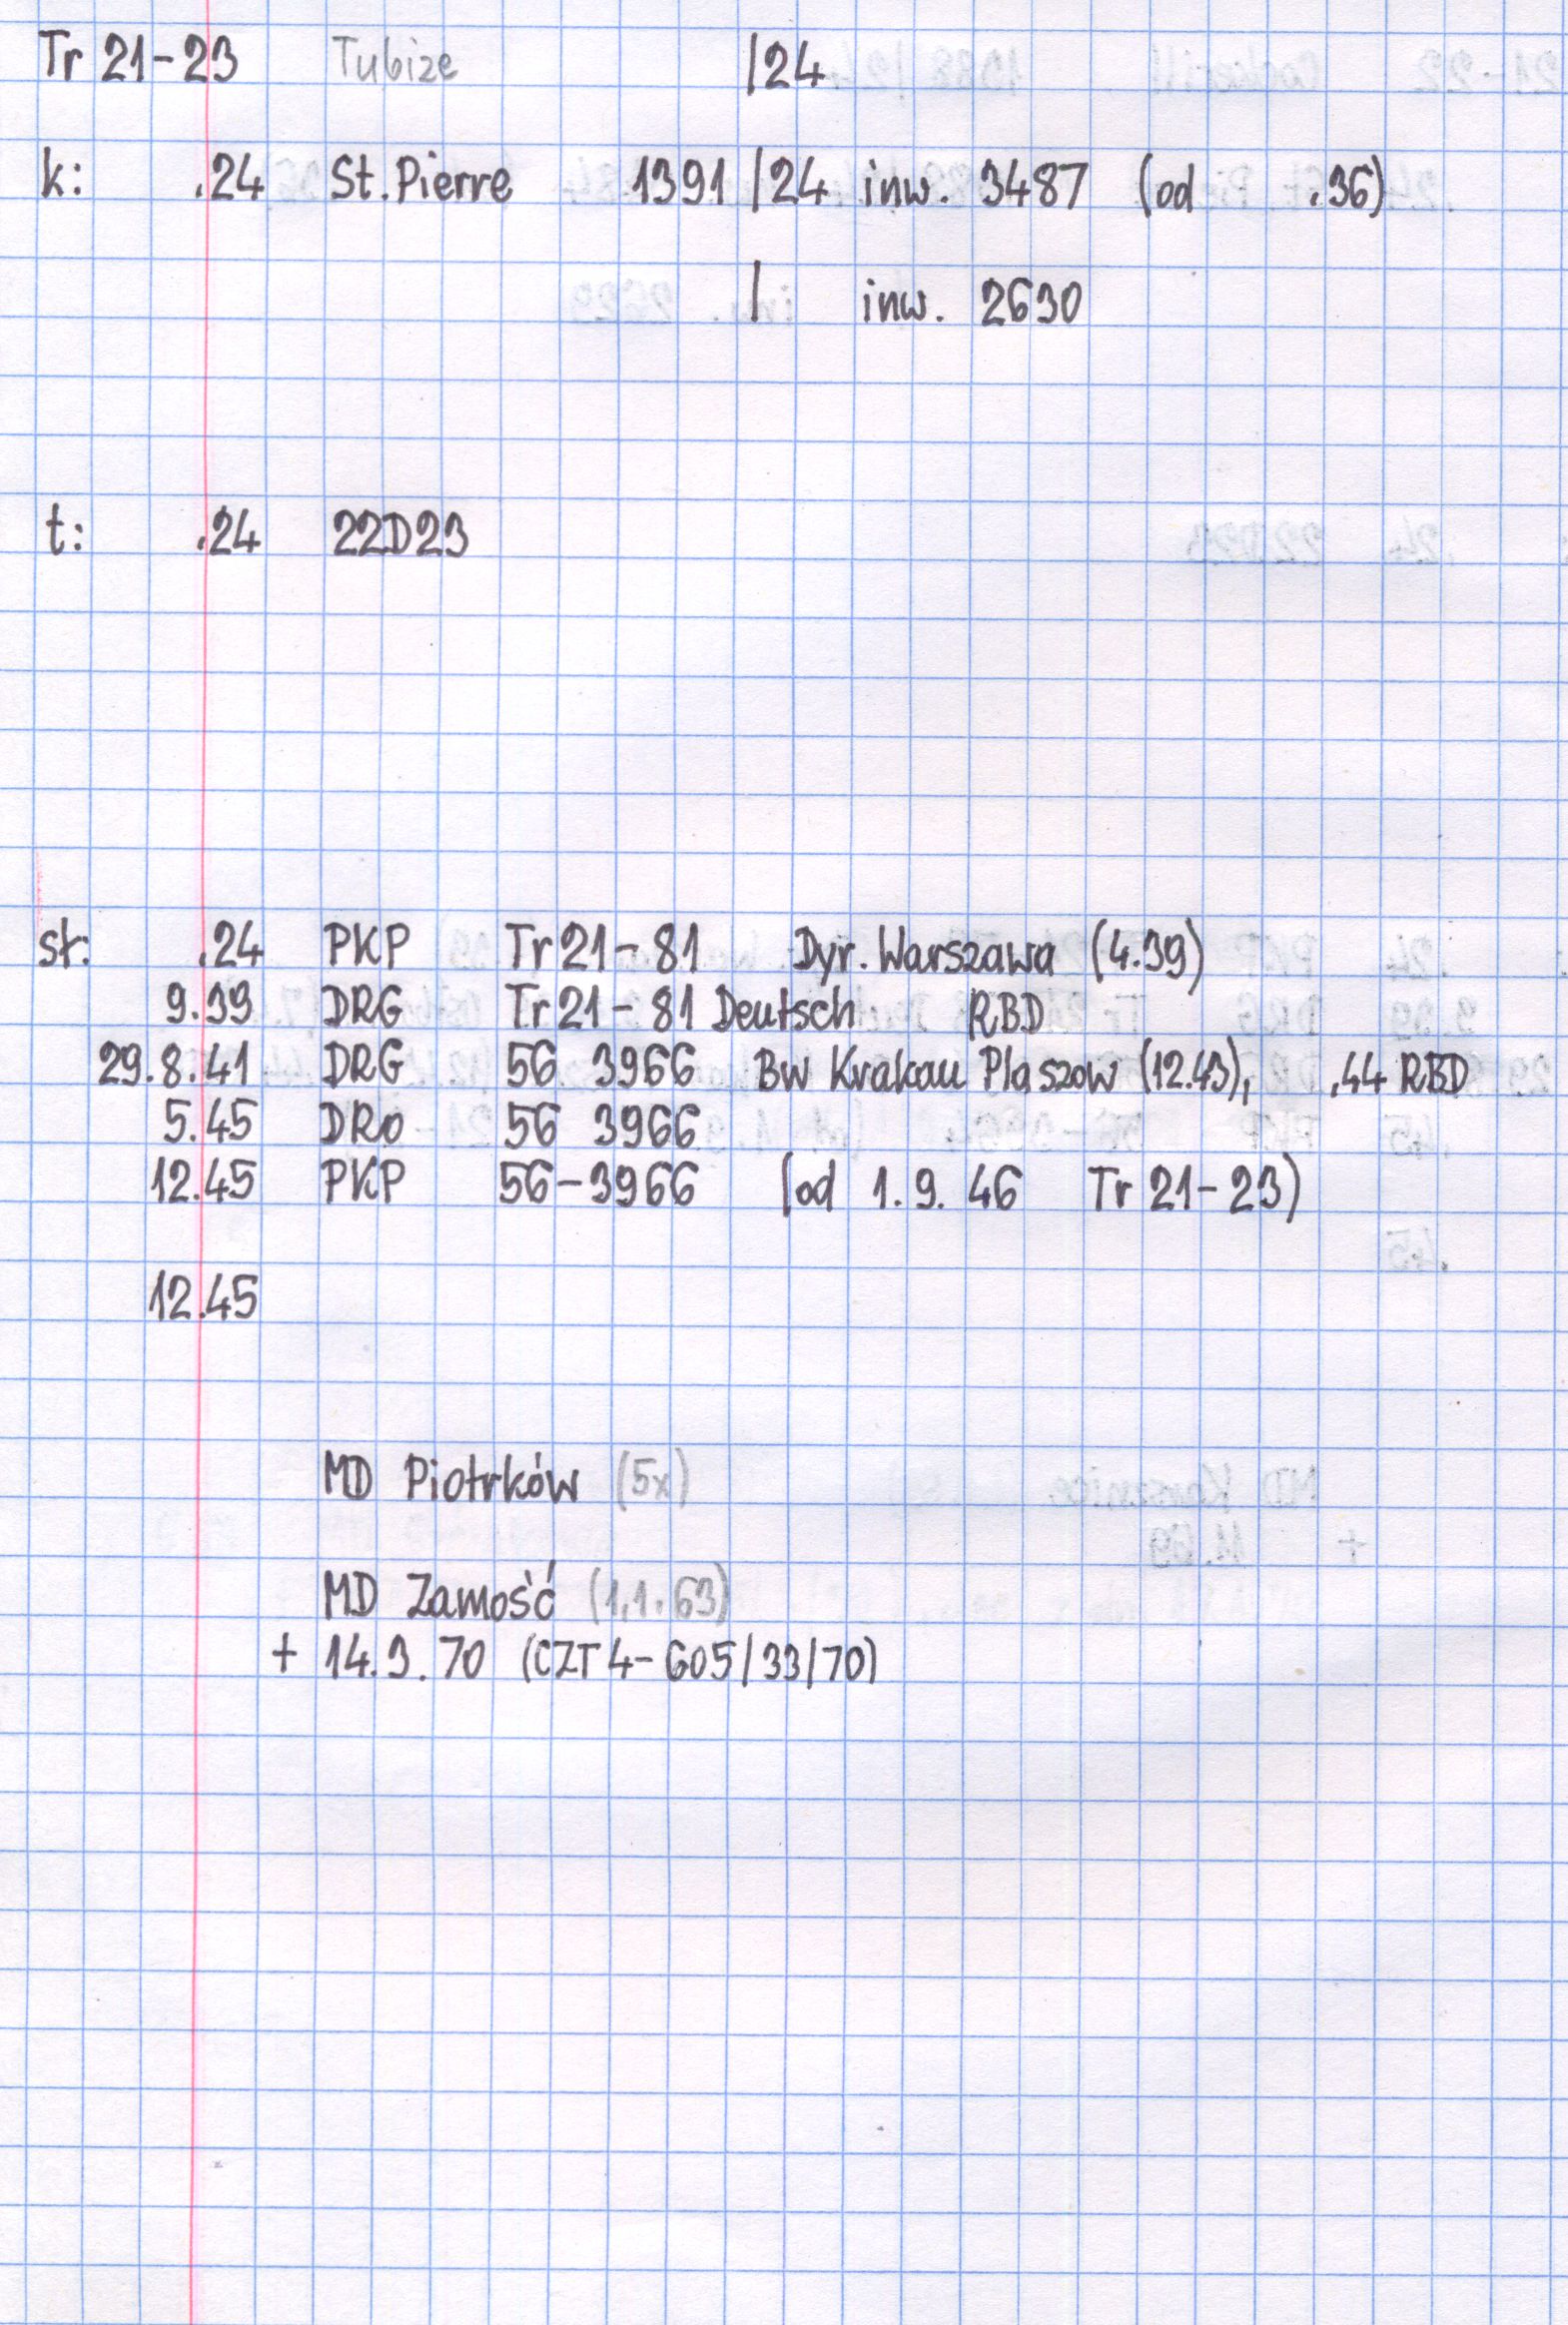 Tr 21-23 Tubize /24
k: .24 St. Pierre 1391/24 inw. 3487 (od .36)
/ inw. 2630
t: .24 22D23
sł: .24 PKP Tr 21-81 Dyr. Warszawa (4.39)
9.39 DRG Tr 21-81 Deutsch RBD
29.8.41 DRG 56 3966 Bw Krakau Plaszow (12.43), .44 RBD
5.45 DRo 56 3966
12.45 PKP 56-3966 (od 1.9.46 Tr 21-23)
12.45
MD Piotrków (5x)
MD Zamość (1.1.63)
+ 14.9.70 (CZT4-605/33/70)